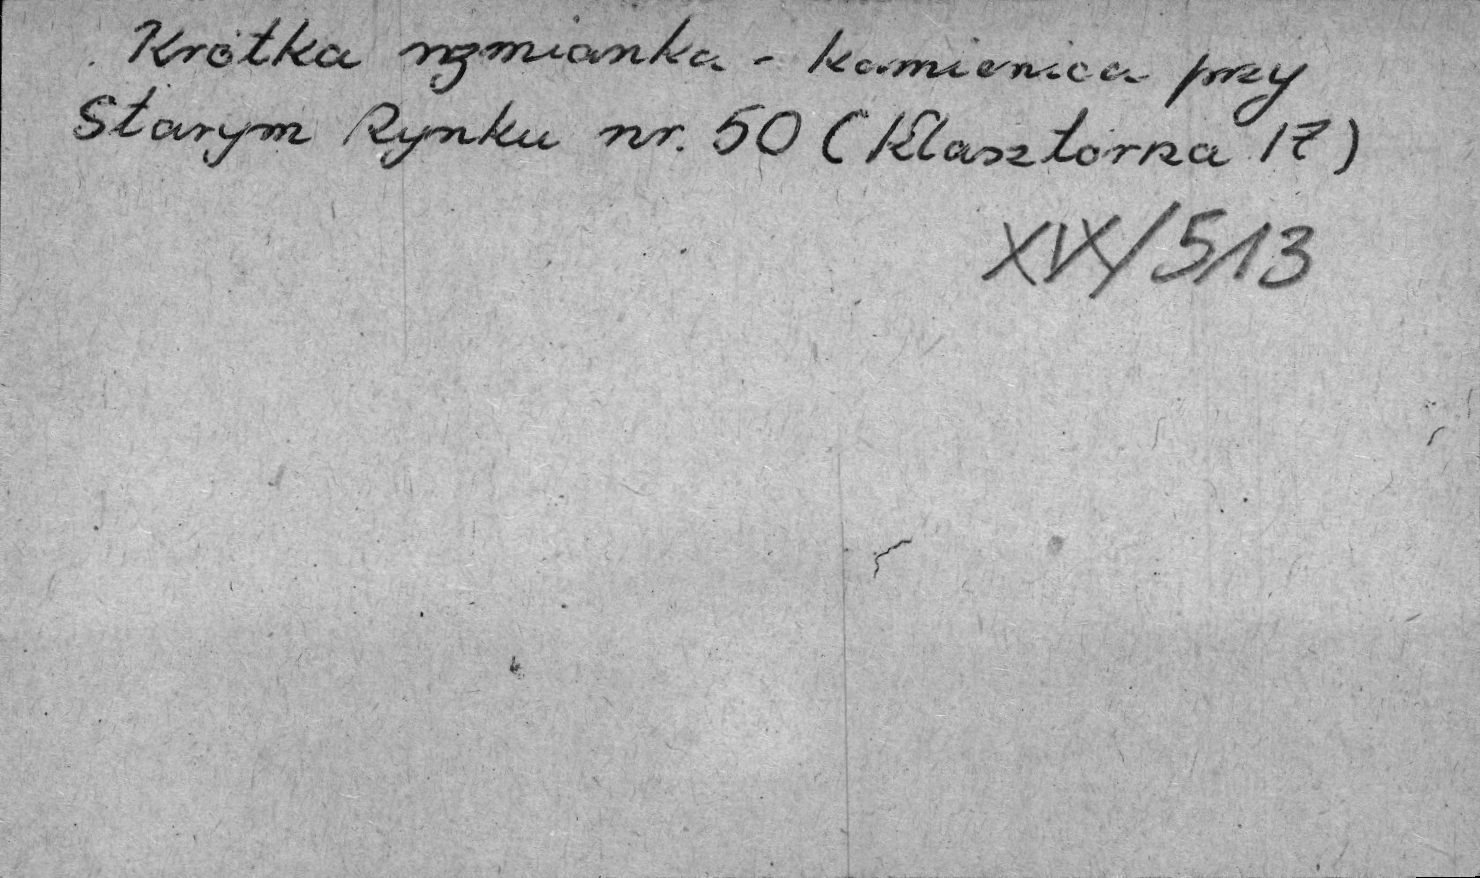 Krótka wzmianka - kamienica przy
Starym Rynku nr. 50 (Klasztorna 17)
XIX/513